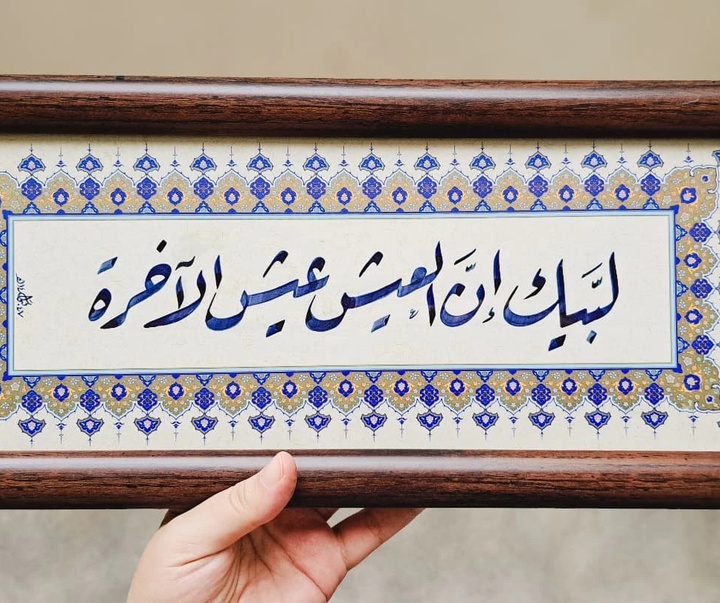 لبَّيك إنَّ العيش عيش الآخرة